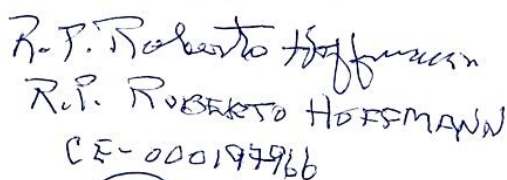 R.P. Roberto Hoffmann
R.P. ROBERTO HOFFMANN
CE-000197966